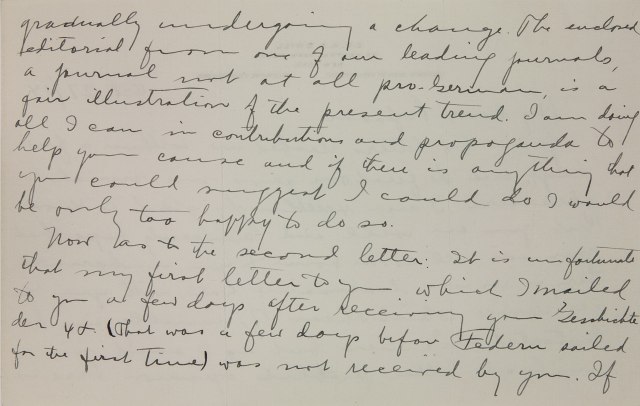 gradually undergoing a change. The enclosed
editorial from one of our leading journals,
a journal not at all pro-German, is a
fair illustration of the present trend. I am doing
all I can in contributions and propaganda to
help your cause and if there is anything that
you could suggest I could do I would
be only too happy to do so.
Now as to the second letter. It is unfortunate
that my first letter to you which I mailed
to you a few days after receiving your Geschichte
der (that was a few days before Federn sailed
for the first time) was not received by you. If